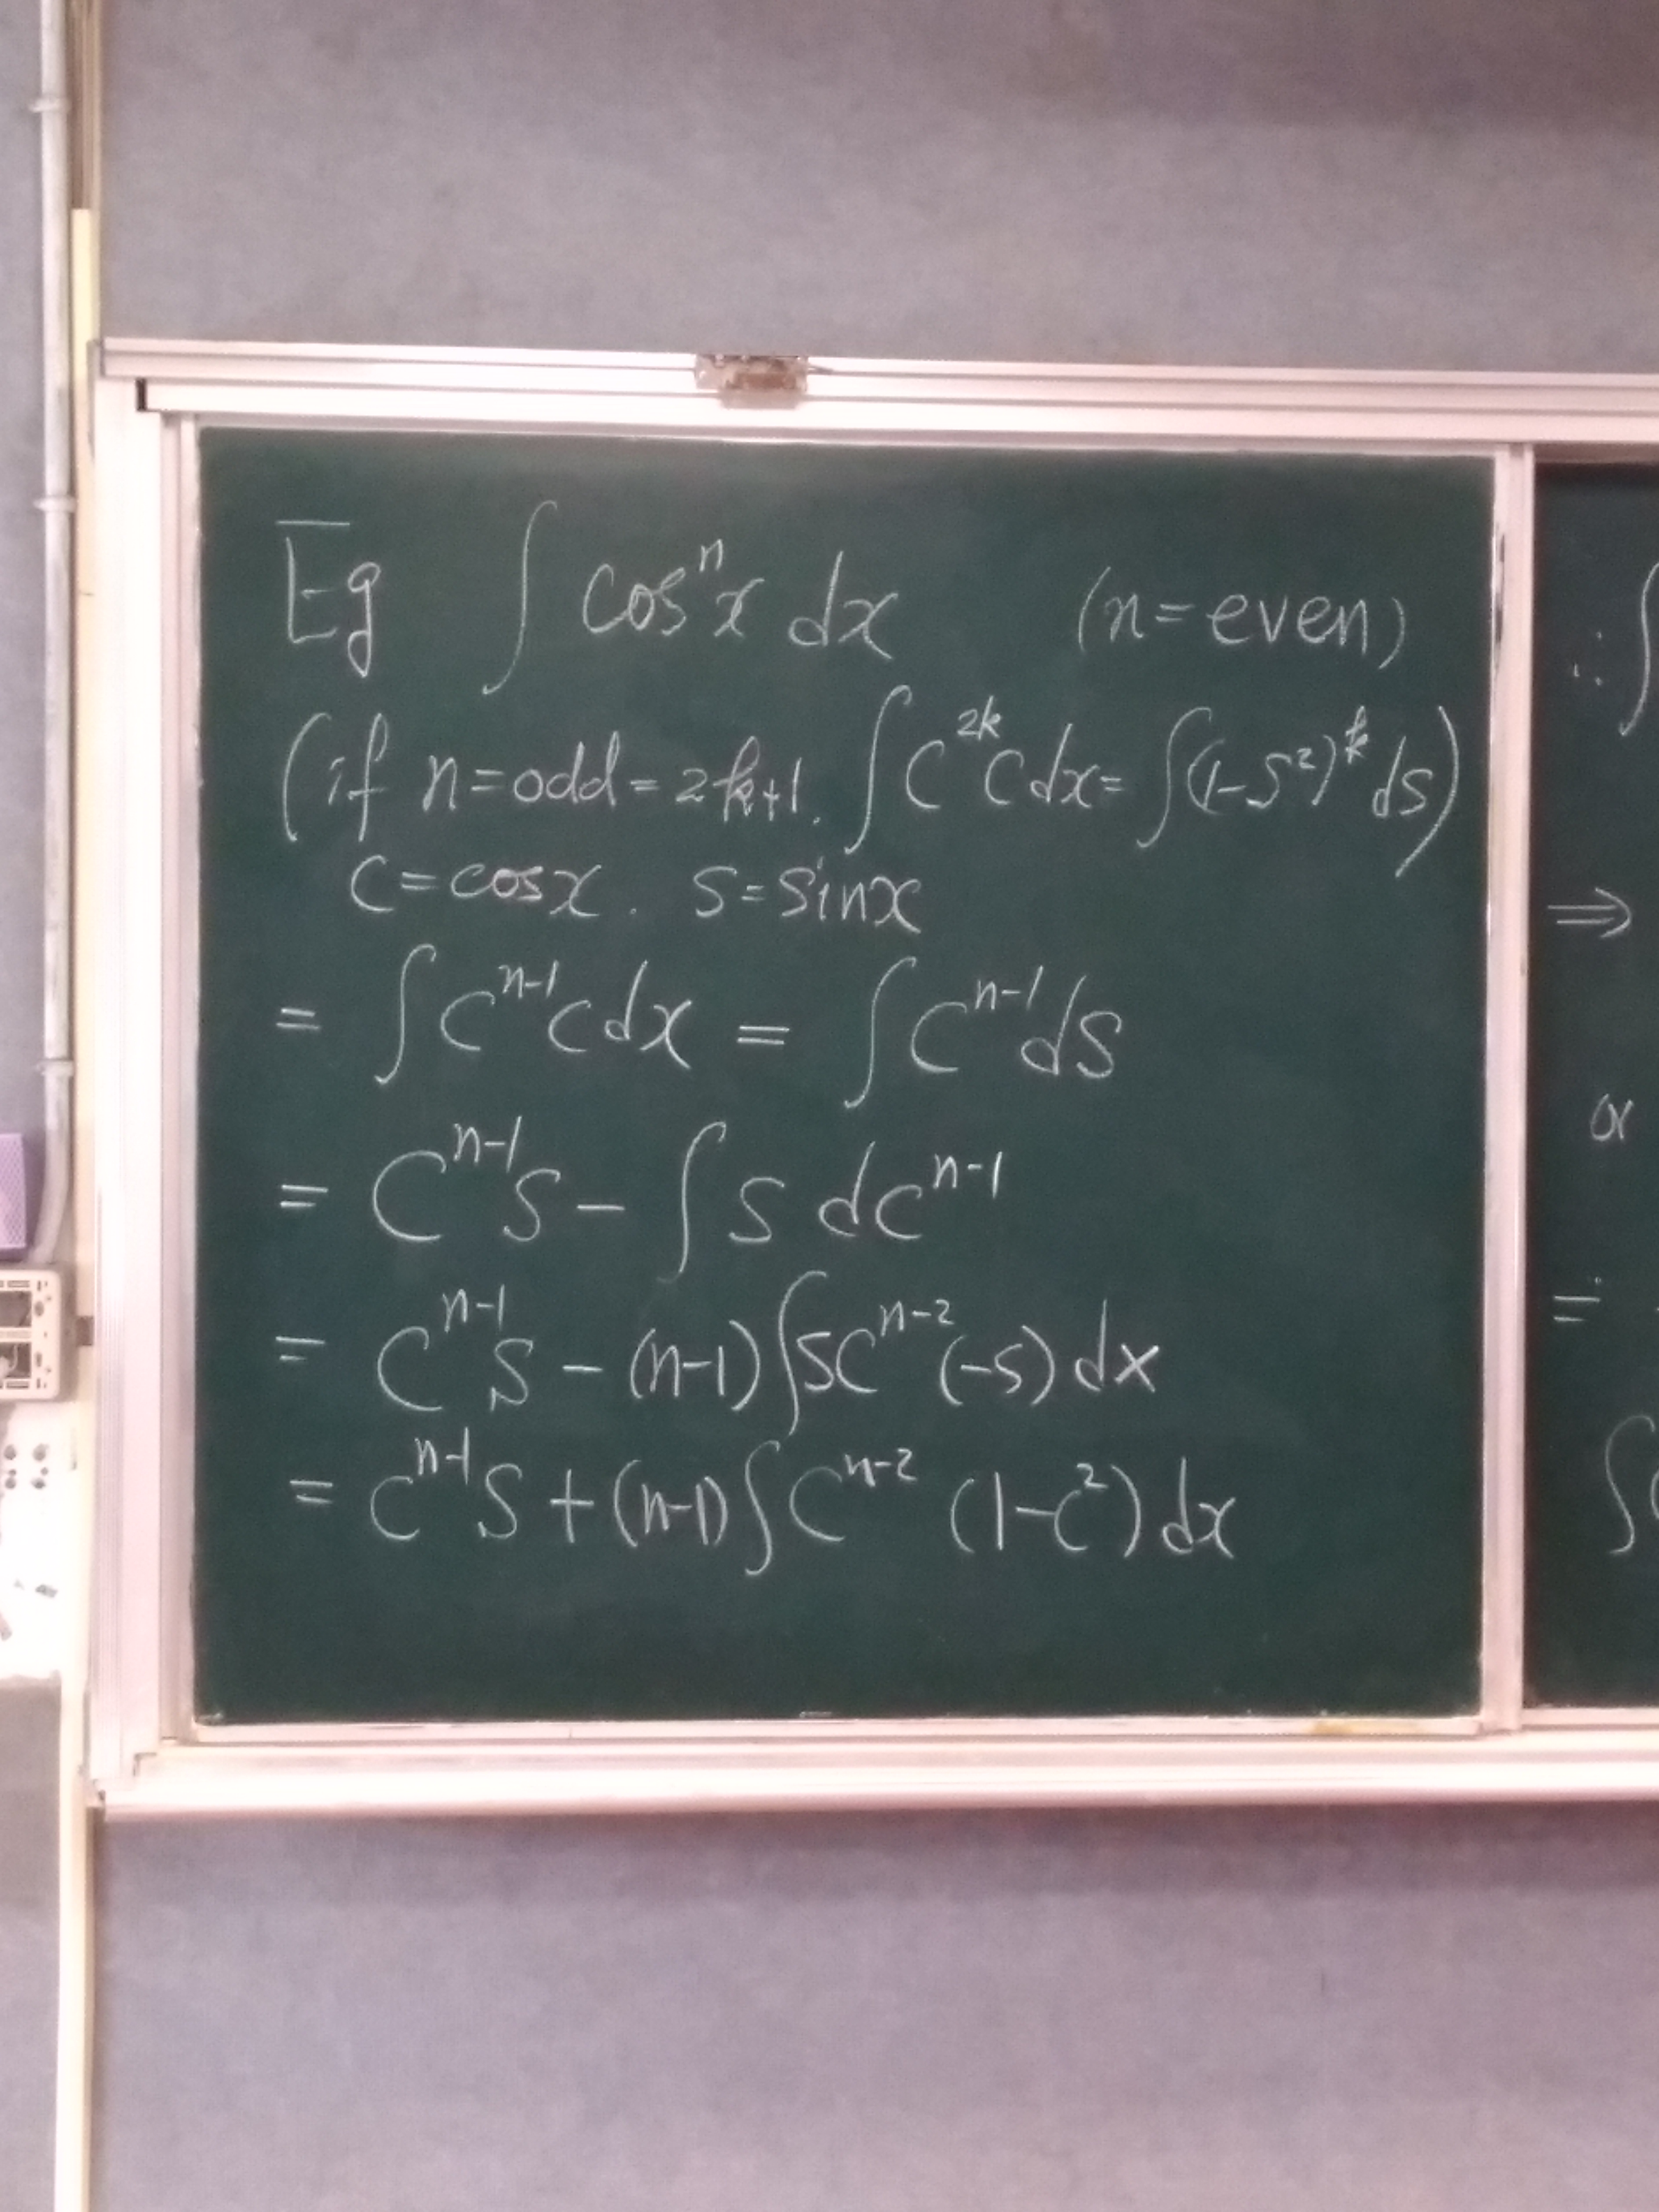 Eg ∫ cosⁿx dx (n=even)
(if n=odd=2k+1. ∫C²ᵏC dx = ∫(1-S²)ᵏ dS)
C=cosx. S=sinx
= ∫Cⁿ⁻¹C dx = ∫Cⁿ⁻¹dS
= Cⁿ⁻¹S - ∫S dCⁿ⁻¹
= Cⁿ⁻¹S - (n-1)∫SCⁿ⁻²(-S) dx
= Cⁿ⁻¹S + (n-1)∫Cⁿ⁻² (1-C²) dx
∴ ∫
⇒
or
=
∫C